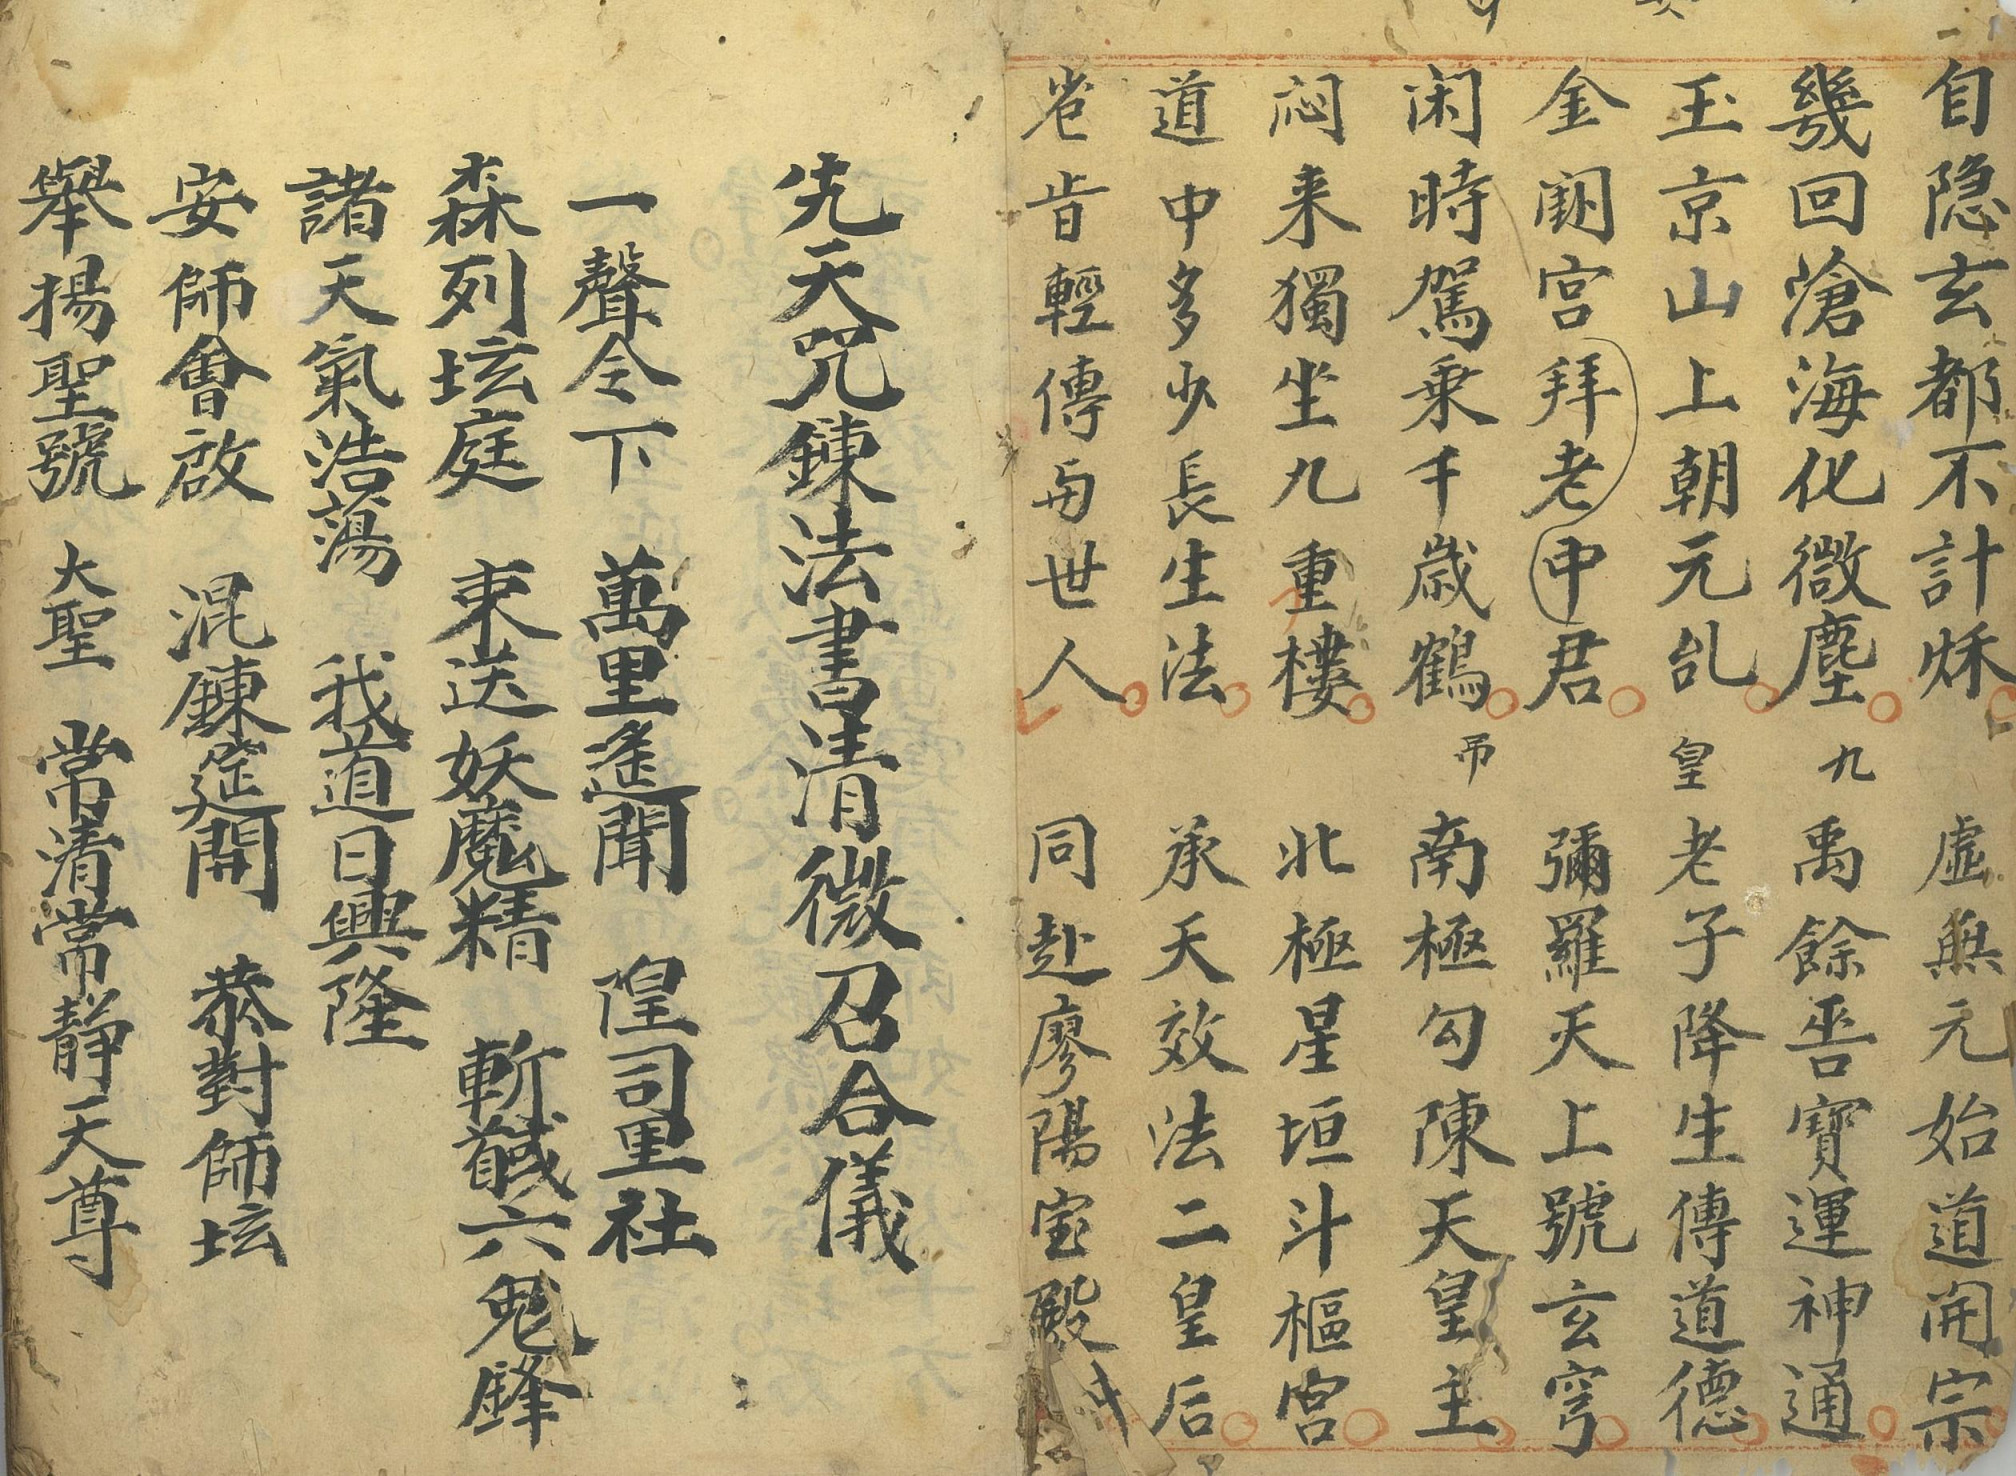 自隐玄都不計秌 虛無元始道開宗
幾回滄海化微塵 九 禹餘善寶運神通
玉京山上朝元台 皇 老子降生傳道德
金闕宮拜老中君 彌羅天上號玄穹
闲時駕乗千歳鶴 吊 南極勾陳天皇主
闷来獨坐九重樓 北極星垣斗樞宮
道中多少長生法 承天效法二皇后
豈肯輕傳与世人 同赴廖陽宝殿
先天咒鍊法書清微召合儀
一聲令下 萬里遙聞 隍司里社
森列坛庭 束送妖魔精 斬馘六鬼鋒
諸天氣浩蕩 我道日興隆
安師會啟 混鍊筵開 恭對師坛
舉揚聖號 大聖 常清常靜天尊